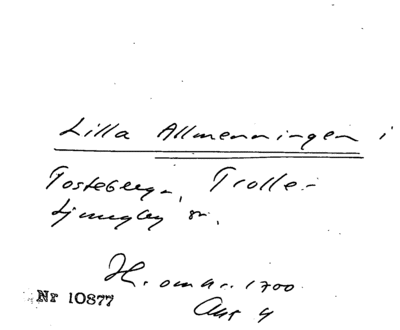 Lilla Allmenningen i
Tosteberga, Trolle-
Ljungby sn.
H. omkr. 1700.
Nr 10877